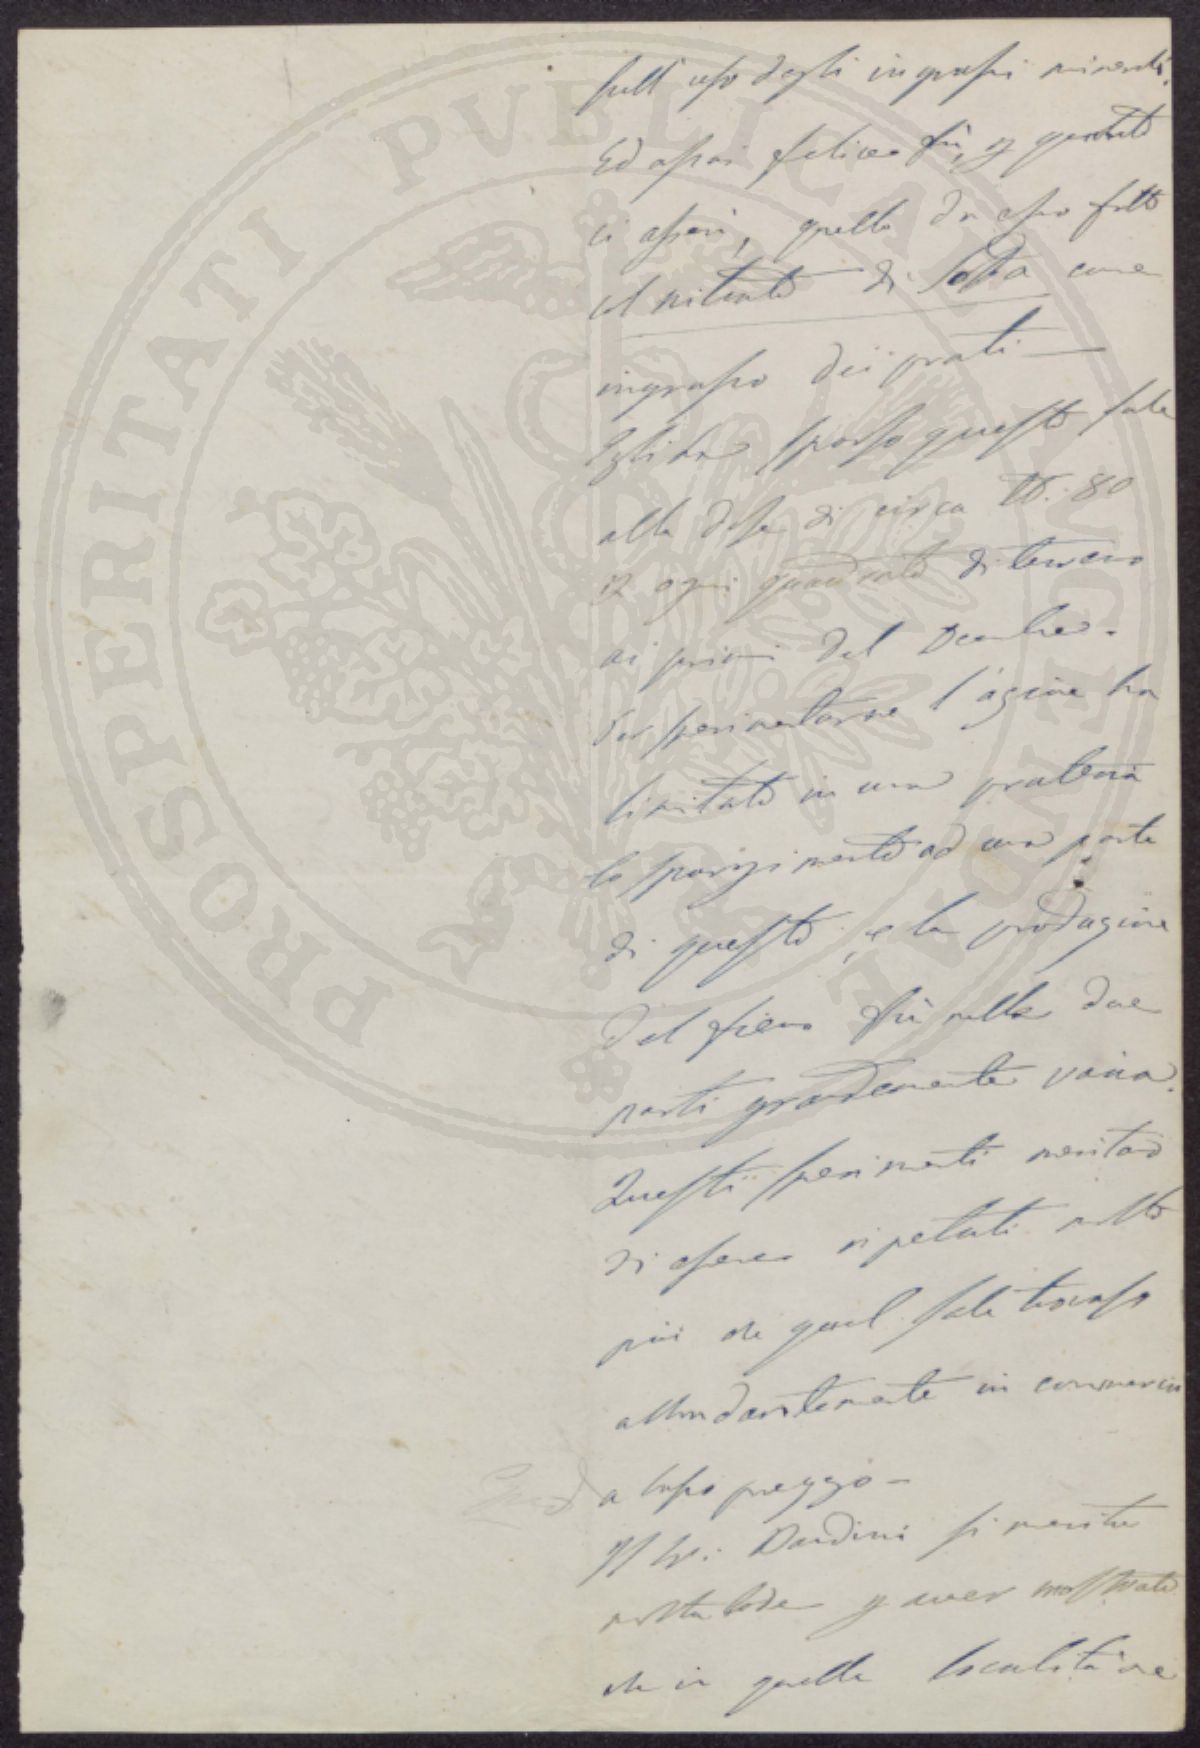 PROSPERITATI PVBLICAE AVGENDAE
sull'uso degli ingrassi minerali.
Ed assai felice fù, p quanto
ci assicurò, quello da esso fatto
col nitrato di Soda come
ingrasso dei prati —
Egli ha sparso questo sale
alla dose di circa lb: 80
p ogni quadrato di terreno
ai primi del Dicembre.
Per sperimentarne l'azione ha
limitato in una prateria
lo spargimento ad una parte
di questo, e la produzione
del fieno fù nelle due
parti grandemente varia.
Questi sperimenti meritano
di essere ripetuti molto
più che quel sale trovasi
abbondantemente in commercio
a basso prezzo —
Il Sig: Dandini si merita
molta lode p aver mostrato
che in quella località ne